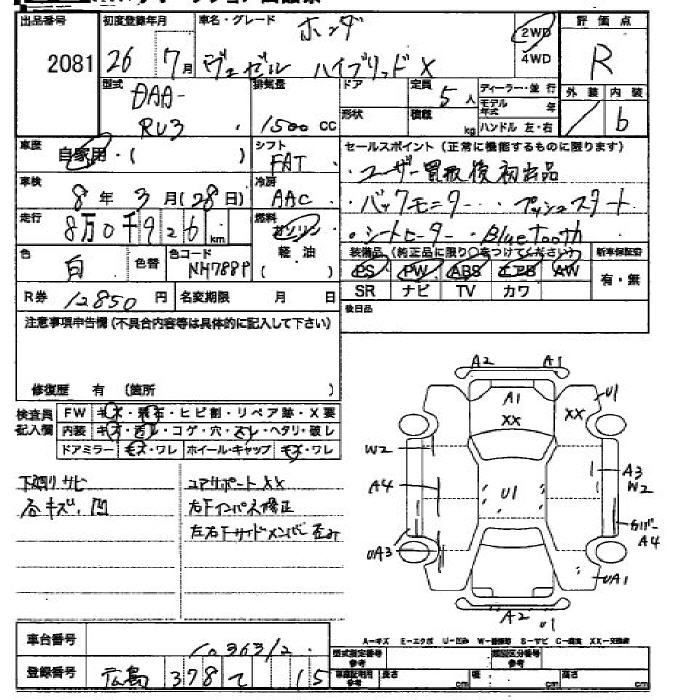 出品番号 2081
初度登録年月 26 7月
車名・グレード ホンダ
ヴェゼル ハイブリッド X
2WD
4WD
評価点 R
外装 内装 b
型式 DAA-
RU3
排気量 1500 CC
ドア
形状
定員 5人
積載 kg
ディーラー・並行
モデル年式 年
ハンドル 左・右
車歴 自家用・( )
シフト FAT
車検 8年 3月 (28日)
冷房 AAC
走行 8万0千926 km
燃料 ガソリン
軽油
( )
色 白 色替
色コード NH788P
R券 12850円 名変期限 月 日
セールスポイント(正常に機能するものに限ります)
・ユーザー買取後初出品
・バックモニター ・プッシュスタート
・シートヒーター ・Bluetooth
装備品(純正品に限り○をつけてください)
PS PW ABS エアB AW
SR ナビ TV カワ
新車保証書
有・無
後日品
注意事項申告欄(不具合内容等は具体的に記入して下さい)
修復歴 有(箇所 )
検査員
記入欄
FW キズ・飛石・ヒビ割・リペア跡・X要
内装 キズ・汚レ・コゲ・穴・スレ・ヘタリ・破レ
ドアミラー キズ・ワレ ホイール・キャップ キズ・ワレ
下廻りサビ
各キズ、凹
コアサポートXX
右Fインパネ修正
左右Fサイドメンバー歪み
A2 A1
A1
XX
XX
U1
W2
A4
U1
A3
W2
A4
UA3
UA1
A2 U1
A=キズ E=エクボ U=凹み
車台番号 1036312
登録番号 広島 378 て 15
型式指定番号
参考
類別区分番号
参考
長さ cm 幅 cm 高さ cm